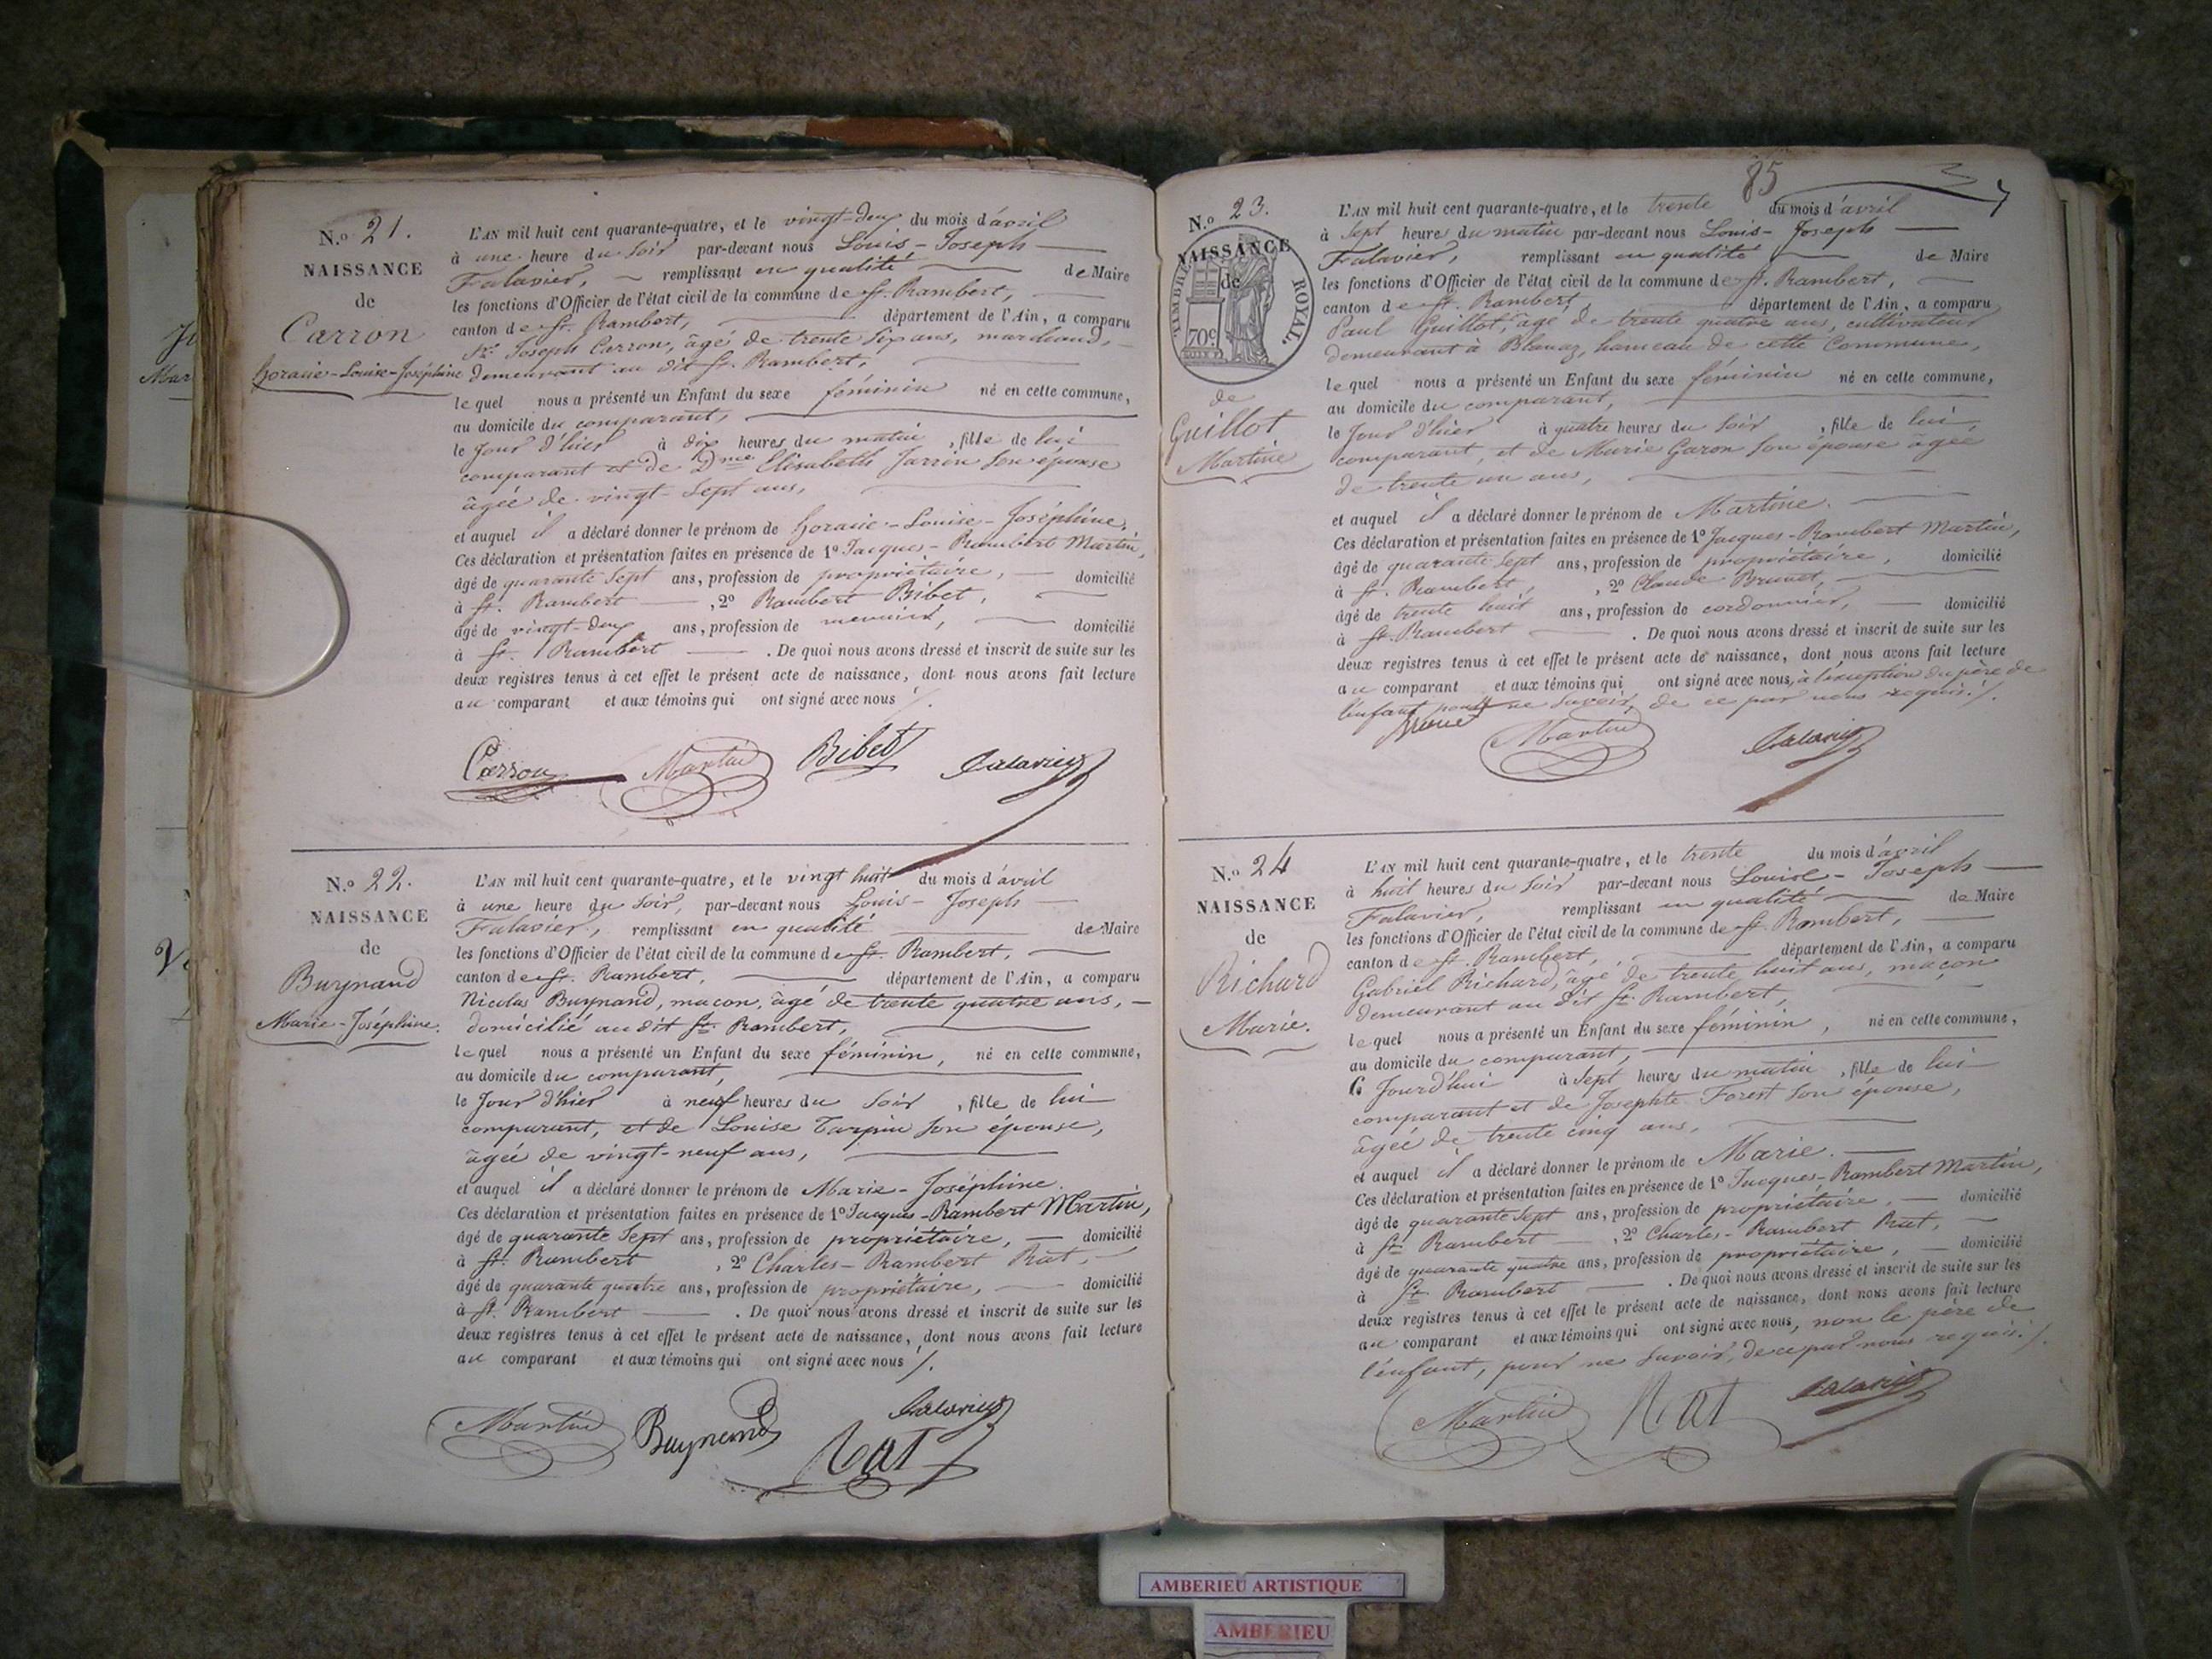 N.o 21.
NAISSANCE
de
Carron
horacie-Louise-Joséphine
L'AN mil huit cent quarante-quatre, et le vingt-deux du mois d'avril
à une heure du soir par-devant nous Louis-Joseph
Falavier, remplissant en qualité de Maire
les fonctions d'Officier de l'état civil de la commune de St. Rambert,
canton de St. Rambert, département de l'Ain, a comparu
Sr. Joseph Carron, âgé de trente six ans, marchand,
demeurant au dit St. Rambert,
lequel nous a présenté un Enfant du sexe féminin né en cette commune,
au domicile du comparant,
le jour d'hier à dix heures du matin, fille de lui
comparant et de Dme Elisabeth Jarrin son épouse
âgée de vingt-sept ans,
et auquel il a déclaré donner le prénom de horacie-Louise-Joséphine.
Ces déclaration et présentation faites en présence de 1o Jacques-Rambert Martin,
âgé de quarante sept ans, profession de propriétaire, domicilié
à St. Rambert, 2o Rambert Bibet,
âgé de vingt-deux ans, profession de domicilié
à St. Rambert. De quoi nous avons dressé et inscrit de suite sur les
deux registres tenus à cet effet le présent acte de naissance, dont nous avons fait lecture
au comparant et aux témoins qui ont signé avec nous ./.
Carron Martin Bibet Falavier
N.o 22.
NAISSANCE
de
Buynand
Marie-Joséphine.
L'AN mil huit cent quarante-quatre, et le vingt huit du mois d'avril
à une heure du soir, par-devant nous Louis-Joseph
Falavier, remplissant en qualité de Maire
les fonctions d'Officier de l'état civil de la commune de St. Rambert,
canton de St. Rambert, département de l'Ain, a comparu
Nicolas Buynand, maçon, âgé de trente quatre ans,
domicilié au dit St. Rambert,
lequel nous a présenté un Enfant du sexe féminin, né en cette commune,
au domicile du comparant,
le jour d'hier à neuf heures du soir, fille de lui
comparant, et de Louise Tarpin son épouse,
âgée de vingt-neuf ans,
et auquel il a déclaré donner le prénom de Marie-Joséphine.
Ces déclaration et présentation faites en présence de 1o Jacques-Rambert Martin,
âgé de quarante sept ans, profession de propriétaire, domicilié
à St. Rambert, 2o Charles-Rambert Rat,
âgé de quarante quatre ans, profession de propriétaire, domicilié
à St. Rambert. De quoi nous avons dressé et inscrit de suite sur les
deux registres tenus à cet effet le présent acte de naissance, dont nous avons fait lecture
au comparant et aux témoins qui ont signé avec nous ./.
Martin Buynand Rat Falavier
85
N.o 23.
NAISSANCE
de
TIMBRE ROYAL.
70c
de
Guillot
Martine
L'AN mil huit cent quarante-quatre, et le trente du mois d'avril
à sept heures du matin par-devant nous Louis-Joseph
Falavier, remplissant en qualité de Maire
les fonctions d'Officier de l'état civil de la commune de St. Rambert,
canton de St. Rambert, département de l'Ain, a comparu
Paul Guillot, âgé de trente quatre ans, cultivateur
demeurant à Blanaz, hameau de cette Commune,
lequel nous a présenté un Enfant du sexe féminin né en cette commune,
au domicile du comparant,
le jour d'hier à quatre heures du soir, fille de lui
comparant, et de Marie Garon son épouse âgée
de trente un ans,
et auquel il a déclaré donner le prénom de Martine.
Ces déclaration et présentation faites en présence de 1o Jacques-Rambert Martin,
âgé de quarante sept ans, profession de propriétaire, domicilié
à St. Rambert, 2o Claude Brunet,
âgé de trente huit ans, profession de cordonnier, domicilié
à St. Rambert. De quoi nous avons dressé et inscrit de suite sur les
deux registres tenus à cet effet le présent acte de naissance, dont nous avons fait lecture
au comparant et aux témoins qui ont signé avec nous, à l'exception du père de
l'enfant pour ne savoir, de ce par nous requis ./.
Martin Falavier
N.o 24
NAISSANCE
de
Richard
Marie.
L'AN mil huit cent quarante-quatre, et le trente du mois d'avril
à huit heures du soir par-devant nous Louise-Joseph
Falavier, remplissant en qualité de Maire
les fonctions d'Officier de l'état civil de la commune de St. Rambert,
canton de St. Rambert, département de l'Ain, a comparu
Gabriel Richard, âgé de trente huit ans, maçon
demeurant au dit St. Rambert,
lequel nous a présenté un Enfant du sexe féminin, né en cette commune,
au domicile du comparant,
Ce Jourd'hui à sept heures du matin, fille de lui
comparant et de Josephte Forest son épouse,
âgée de trente cinq ans,
et auquel il a déclaré donner le prénom de Marie.
Ces déclaration et présentation faites en présence de 1o Jacques-Rambert Martin,
âgé de quarante sept ans, profession de propriétaire, domicilié
à St. Rambert, 2o Charles-Rambert Rat,
âgé de quarante quatre ans, profession de propriétaire, domicilié
à St. Rambert. De quoi nous avons dressé et inscrit de suite sur les
deux registres tenus à cet effet le présent acte de naissance, dont nous avons fait lecture
au comparant et aux témoins qui ont signé avec nous, non le père de
l'enfant, pour ne savoir, de ce par nous requis ./.
Martin Rat Falavier
AMBERIEU ARTISTIQUE
AMBERIEU